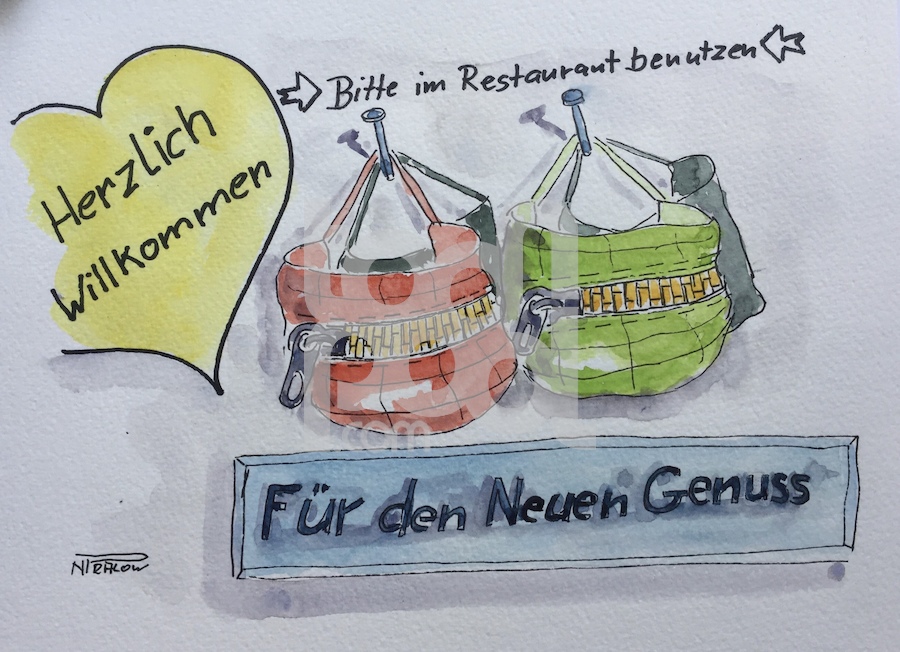 Herzlich
Willkommen
Bitte im Restaurant benutzen
Für den Neuen Genuss
.com